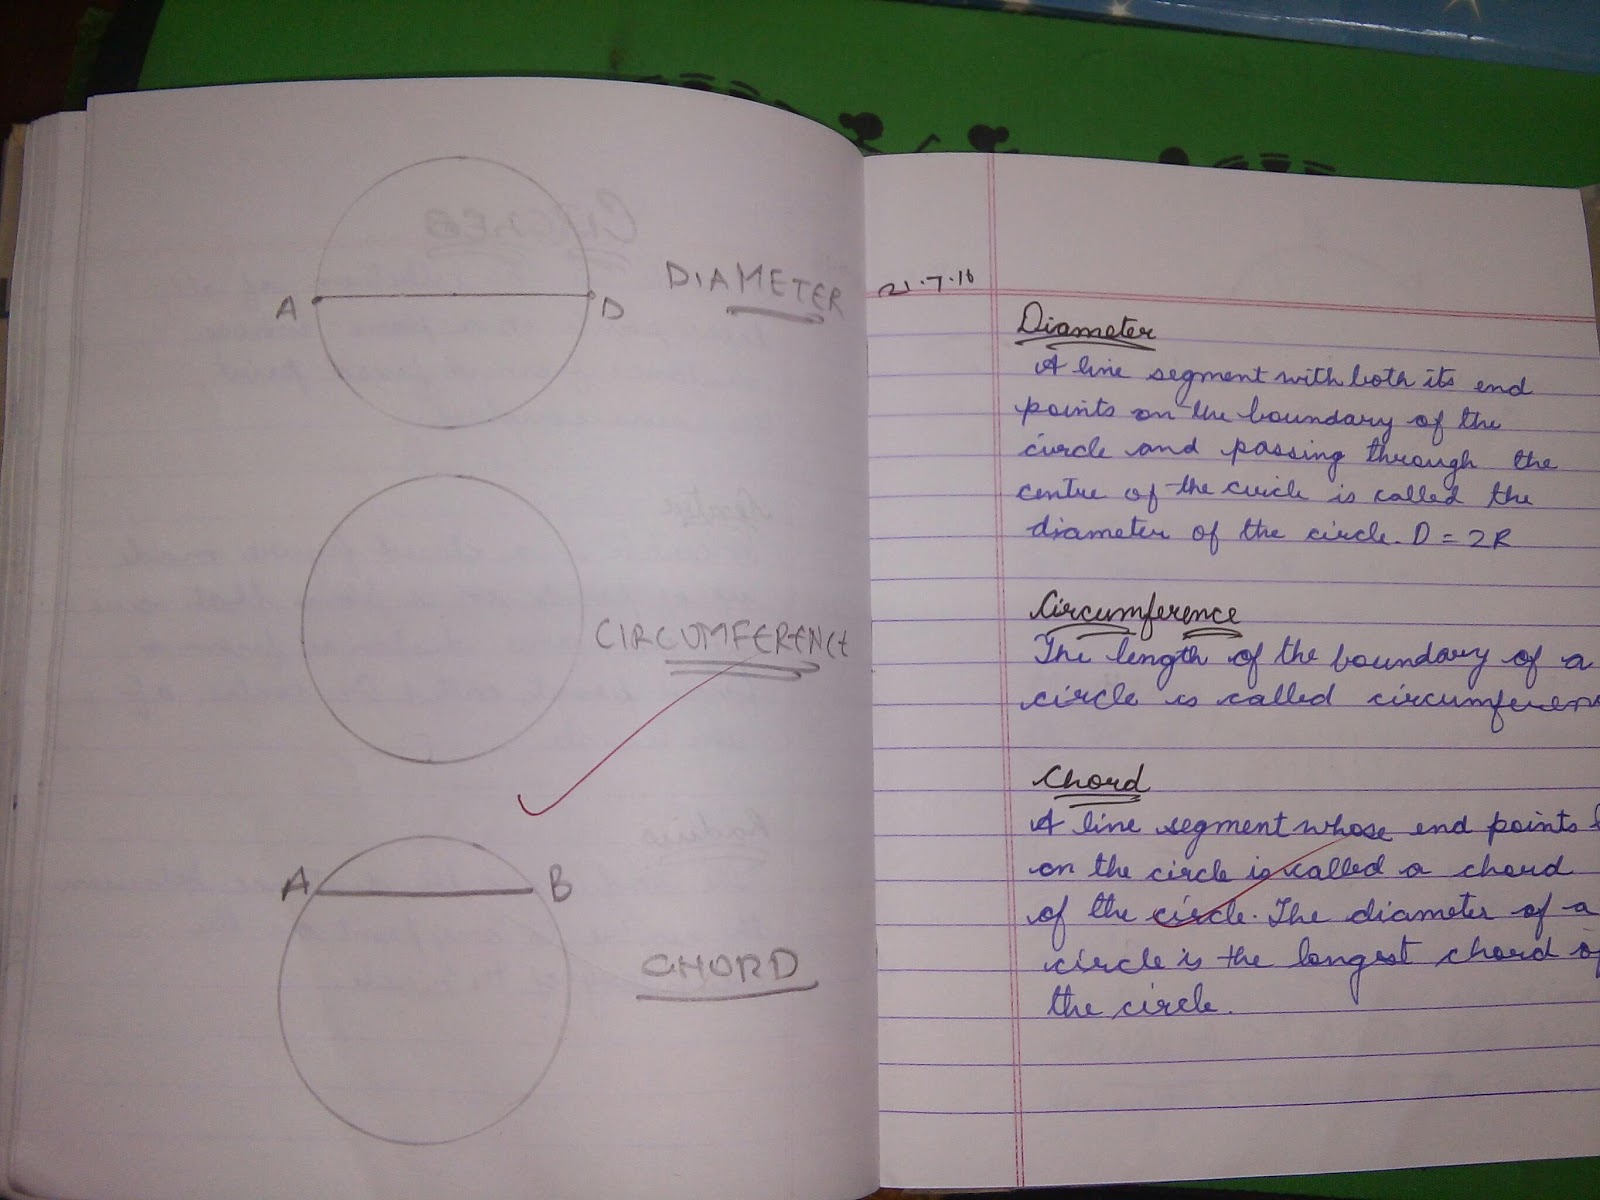 A
D
DIAMETER
CIRCUMFERENCE
A
B
CHORD
21.7.16
Diameter
A line segment with both its end
points on the boundary of the
circle and passing through the
centre of the circle is called the
diameter of the circle. D = 2R
Circumference
The length of the boundary of a
circle is called circumferen
Chord
A line segment whose end points
on the circle is called a chord
of the circle. The diameter of a
circle is the longest chord of
the circle.